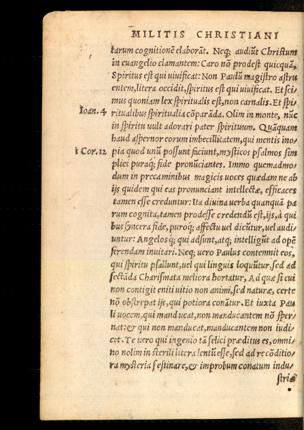 MILITIS CHRISTIANI
tarum cognitionē elaborāt. Neq; audiūt Christum
in euangelio clamantem: Caro nō prodest quicquā,
Spiritus est qui uiuificat: Non Paulū magistro astru
entem, litera occidit, spiritus est qui uiuificat. Et sci
mus quoniam lex spiritualis est, non carnalis. Et spi
Ioan. 4 ritualibus spiritualia cōparāda. Olim in monte, nūc
in spiritu uult adorari pater spirituum. Quāquam
haud aspernor eorum imbecillitatem, qui mentis ino
1 Cor. 12 pia quod unū possunt faciunt, mysticos psalmos sim
plici puraq; fide pronūciantes. Immo quemadmo
dum in precaminibus magicis uoces quædam ne ab
ijs quidem qui eas pronunciant intellectæ, efficaces
tamen esse creduntur: Ita diuina uerba quanquā pa
rum cognita, tamen prodesse credendū est, ijs, à qui
bus syncera fide, puroq; affectu uel dicūtur, uel audi
untur: Angelosq; qui adsunt, atq; intelligūt ad opē
ferendam inuitari. Neq; uero Paulus contemnit eos,
qui spiritu psallunt, uel qui lingua loquūtur, sed ad
sectāda Charismata meliora hortatur. Ad quæ si cui
non contigit eniti uitio non animi, sed naturæ, certe
nō obstrepat ijs, qui potiora conātur. Et iuxta Pau
li uocem, qui manducat, non manducantem nō sper
nat: & qui non manducat, manducantem non iudi
cet. Te uero qui ingenio tā felici præditus es, omni
no nolim in sterili litera lentū esse, sed ad recōditio
ra mysteria festinare, & improbum conatum indu
striæ